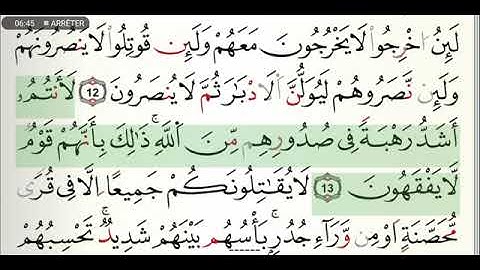 06:45 ■ ARRÊTER
لَئِنُ اخْرِجُوا لَا يَخْرُجُونَ مَعَهُمْ وَلَئِن قُوتِلُوا لَا يَنصُرُونَهُمْ
وَلَئِن نَّصَرُوهُمْ لَيُوَلُّنَّ اَلَادْبَٰرَ ثُمَّ لَا يُنصَرُونَ 12 لَأَنتُمُۥ
أَشَدُّ رَهْبَةً فِى صُدُورِهِم مِّنَ اَللَّهِ ذَٰلِكَ بِأَنَّهُمْ قَوْمٌ
لَّا يَفْقَهُونَ 13 لَا يُقَٰتِلُونَكُمْ جَمِيعًا اِلَّا فِى قُرًى
مُّحَصَّنَةٍ اَوْ مِنْ وَّرَآءِ جُدُرٍ بَأْسُهُم بَيْنَهُمْ شَدِيدٌ تَحْسِبُهُمْ